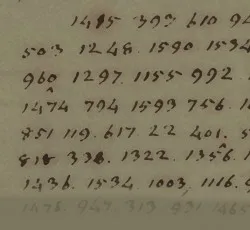 1415 393 610 94
503 1248. 1590 1534
960 1297. 1155 992
1474 794 1593 756. 1
851 119. 617. 22 401. 5
818 338. 1322. 1356. 1
1436. 1534. 1003. 1116. 9
1478. 947. 313 931